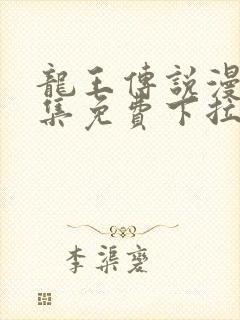 龍王傳說漫
集免費下拉
李渠磐